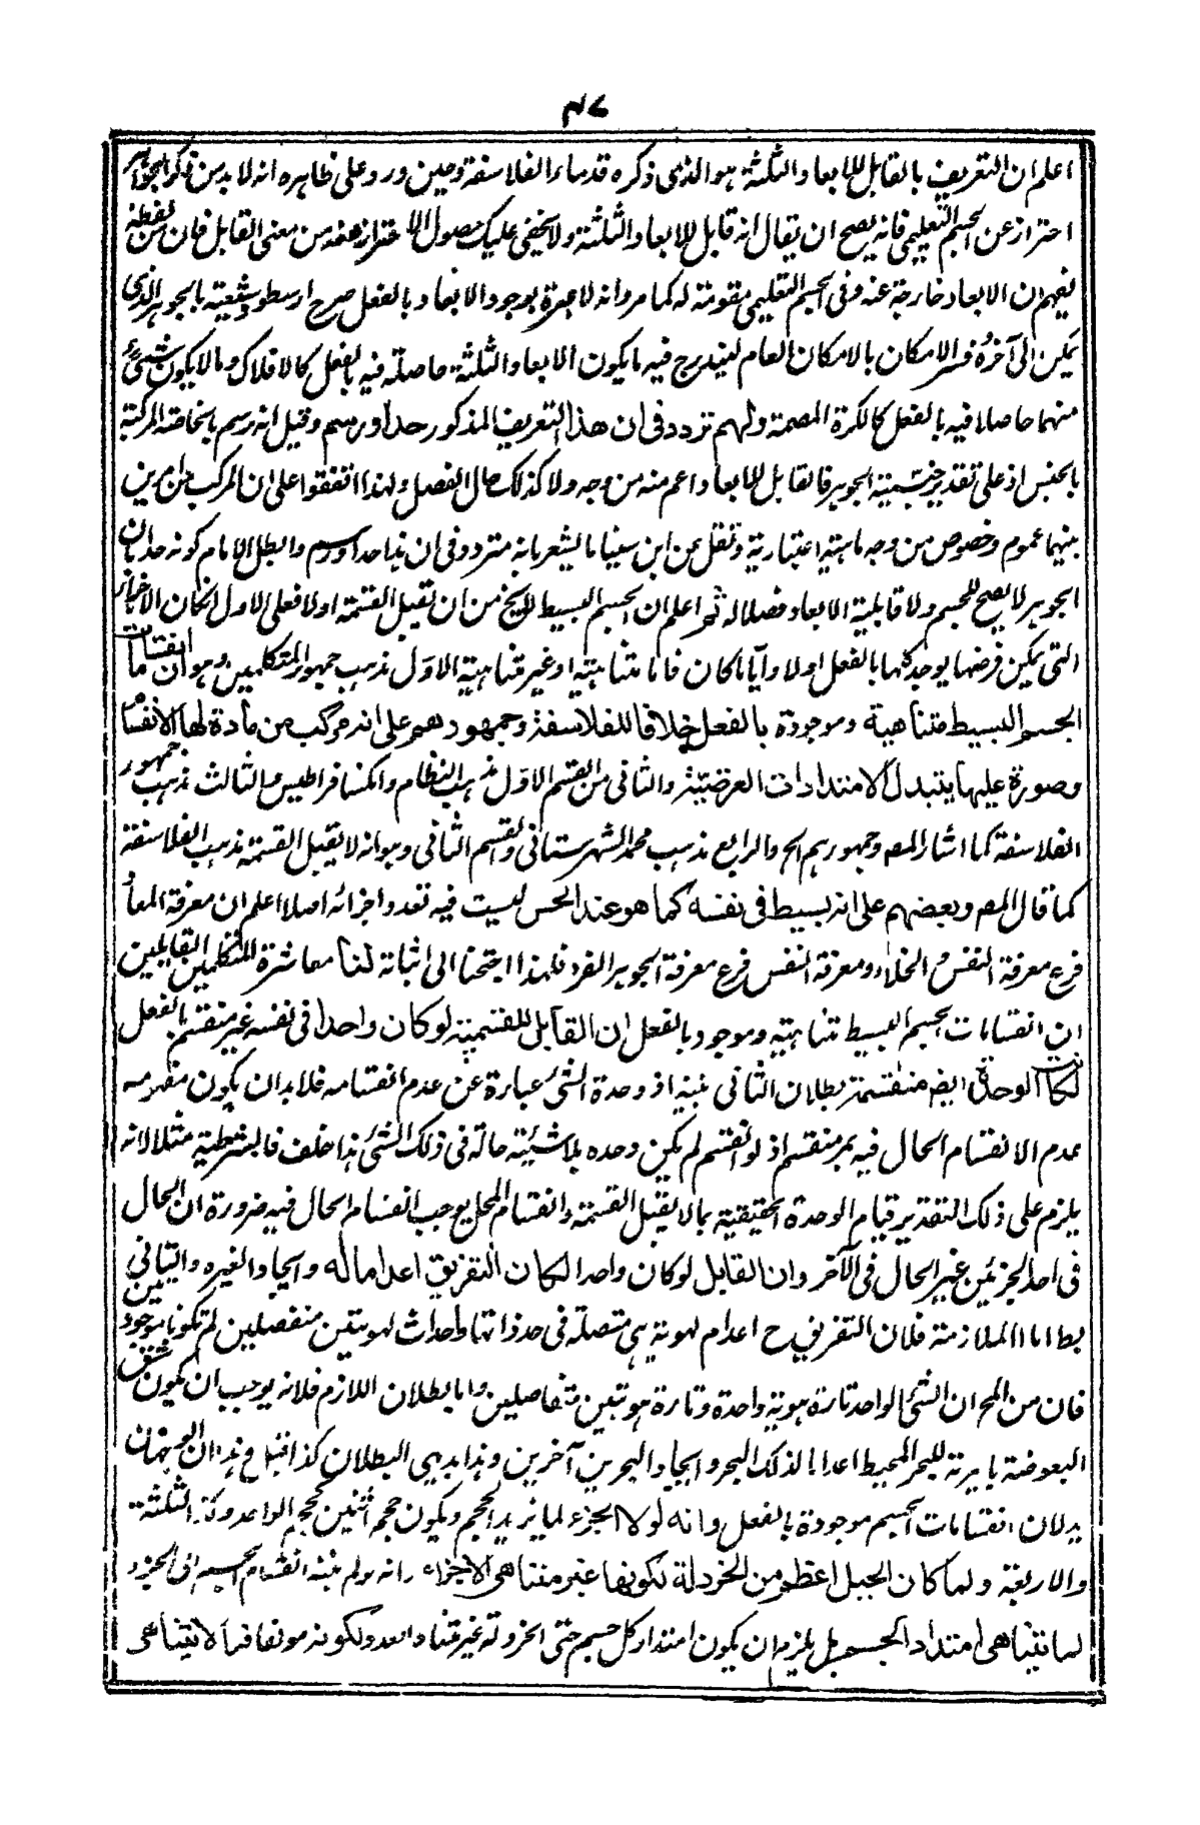 ٤٧
اعلم ان التعريف بالقابل للابعاد الثلثة هو الذى ذكره قدماء الفلاسفة وحين ورد على ظاهره انه لا بد من ذكر الجوهر
احترازعن الجسم التعليمى فانه يصح ان يقال انه قابل للابعاد الثلثة ولا يخفى عليك حصول الاحتراز عنه من معنى القابل فان من لفظه
يفهم ان الابعاد خارجة عنه وفى الجسم التعليمى مقومة له كما مر وانه لا عبرة بوجود الابعاد بالفعل صرح ارسطو وشيعته بالجوهر الذى
يمكن الى آخره فسر الامكان بالامكان العام ليندرج فيه ما يكون الابعاد الثلثة حاصلة فيه بالفعل كالافلاك وما لا يكون شىء
منهما حاصلا فيه بالفعل كالكرة المصمتة ولهم تردد فى ان هذا التعريف المذكور حد او رسم وقيل انه رسم بالخاصة المركبة
بالجنس اذ على تقدير جنسية الجوهر فالقابل للابعاد اعم منه من وجه ولا كذلك حال الفصل ولهذا اتفقوا على ان المركب من امرين
بينهما عموم وخصوص من وجه ماهية اعتبارية ونقل عن ابن سينا ما يشعر بانه متردد فى ان هذا حد او رسم وابطل الامام كونه حدا بان
الجوهر لا يصح للجسم ولا قابلية الابعاد فصلا له ثم اعلم ان الجسم البسيط لا يخ من ان تقبل القسمة اولا فعلى الاول اكان الاجزاء
التى يمكن فرضها يوجد كلها بالفعل اولا وآيا ما كان فاما متناهية او غير متناهية الاول مذهب جمهور المتكلمين وهو ان انقسامات
الجسم البسيط متناهية وموجودة بالفعل خلافا للفلاسفة وجمهورهم على انه مركب من مادة لها الانقسا
وصورة عليها يتبدل الامتدادات العرضية والثانى من القسم الاول مذهب النظام وانكسافراطيس والثالث مذهب جمهور
الفلاسفة كما اشار المص وجمهورهم الخ والرابع مذهب محمد الشهرستانى والقسم الثانى وهو انه لا يقبل القسمة مذهب الفلاسفة
كما قال المص وبعضهم على انه بسيط فى نفسه كما هو عند الحس ليست فيه تعدد اجزائه اصلا اعلم ان معرفة المعاد
فرع معرفة النفس والخلاء ومعرفة النفس فرع معرفة الجوهر الفرد فلهذا احتجنا الى اثباته لنا معاشرة المتكلمين القايلين
ان انقسامات الجسم البسيط متناهية وموجود بالفعل ان القابل للقسمية لو كان واحدا فى نفسه غير منقسم بالفعل
لكانت الوحدة ايض منقسمة بطلان الثانى بينة اذ وحدة الشئ عبارة عن عدم انقسامه فلا بد ان يكون مفهومه
عدم الانقسام الحال فيه غير منقسم اذ لو انقسم لم يكن وحده بلا شيئية حالة فى ذلك الشئ هذا خلف فالشرطية مثلا لانه
يلزم على ذلك التقدير قيام الوحدة الحقيقية بما لا يقبل القسمة وانقسام المحل يوجب انقسام الحال فيه ضرورة ان الحال
فى احد الجزئين غير الحال فى الآخر وان القابل لو كان واحدا لكان التفريق اعداما له وايجادا لغيره والثانى
بط اما الملازمة فلان التفريق ح اعدام لهوية هى متصلة فى حد ذاتها واحداث لهويتين منفصلين لم تكونا موجودتين
فان من المح ان الشئ الواحد تارة هوية واحدة وتارة هويتين متفاصلين واما بطلان اللازم فلانه يوجب ان يكون شق
البعوضة بابرته للبحر المحيط اعداما لذلك البحر وايجاد البحرين آخرين وهذا بديهى البطلان كذا قيل وهذان الوجهان
يدلان انقسامات الجسم موجودة بالفعل وانه لولا الجزء لما يزيد الحجم ويكون حجم اثنين كحجم الواحد وكذا الثلثة
والاربعة ولما كان الجبل اعظم من الخردلة لكونهما غير متناهى الاجزاء وانه لو لم ينته انقسام الجسم الى الجزء
لما تناهى امتداد الجسم بل يلزم ان يكون امتدار كل جسم حتى الخردلة غير متناه العدد لكونه مؤلفا مما لا يتناهى